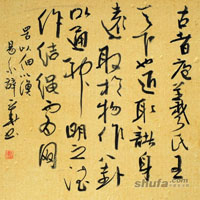 古者庖羲氏王
天下也近取諸身
遠取於物作八卦
以通神明之德
作結繩而為網
罟以佃以漁
shufa.com